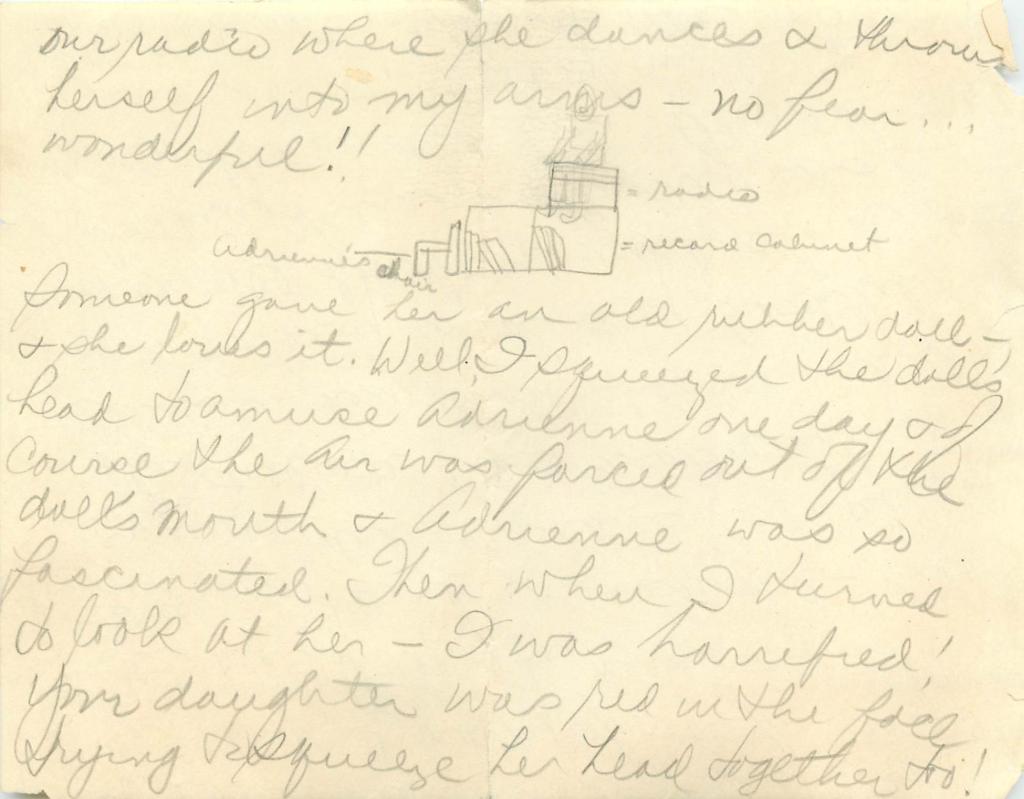 our radio where she dances & throws
herself into my arms - no fear...
wonderful!!
= radio
= record cabinet
Adrienne's
chair
Someone gave her an old rubber doll -
& she loves it. Well, I squeezed the doll's
head to amuse Adrienne one day & of
course the air was forced out of the
doll's mouth & Adrienne was so
fascinated. Then when I turned
to look at her - I was horrified!
Your daughter was red in the face
trying to squeeze her head together too!